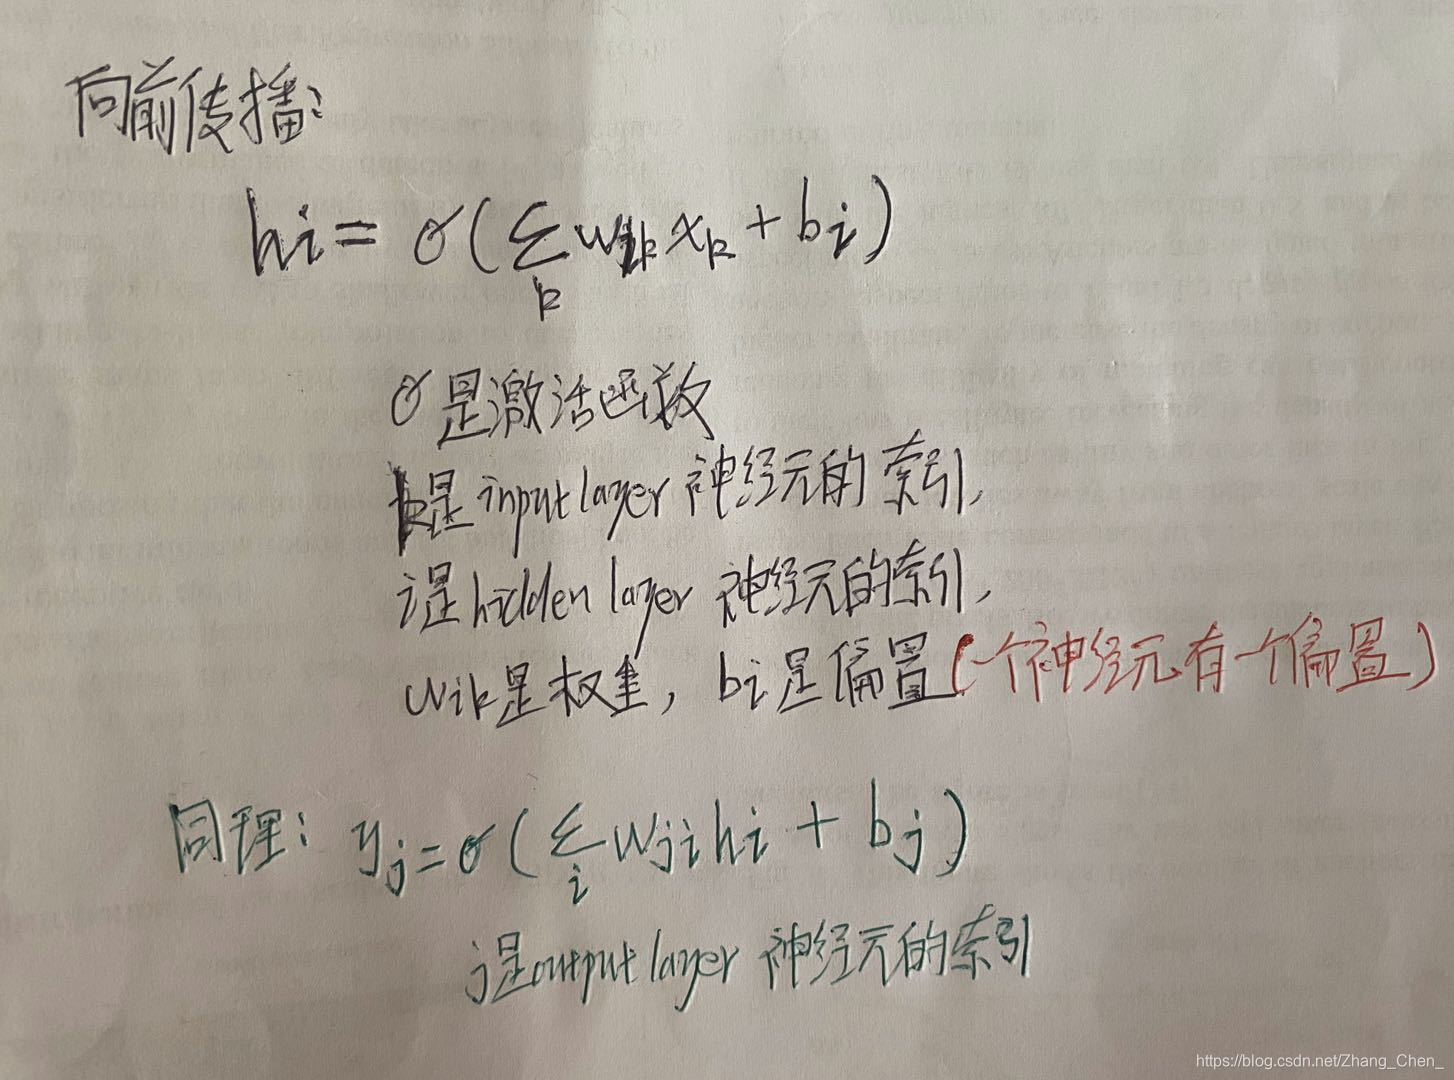 向前传播：
hi = σ(∑ wik xk + bi)
k
σ是激活函数
k是input layer 神经元的索引，
i是hidden layer 神经元的索引，
wik是权重，bi是偏置(一个神经元有一个偏置)
同理：yj = σ(∑ wji hi + bj)
i
j是output layer 神经元的索引
https://blog.csdn.net/Zhang_Chen_